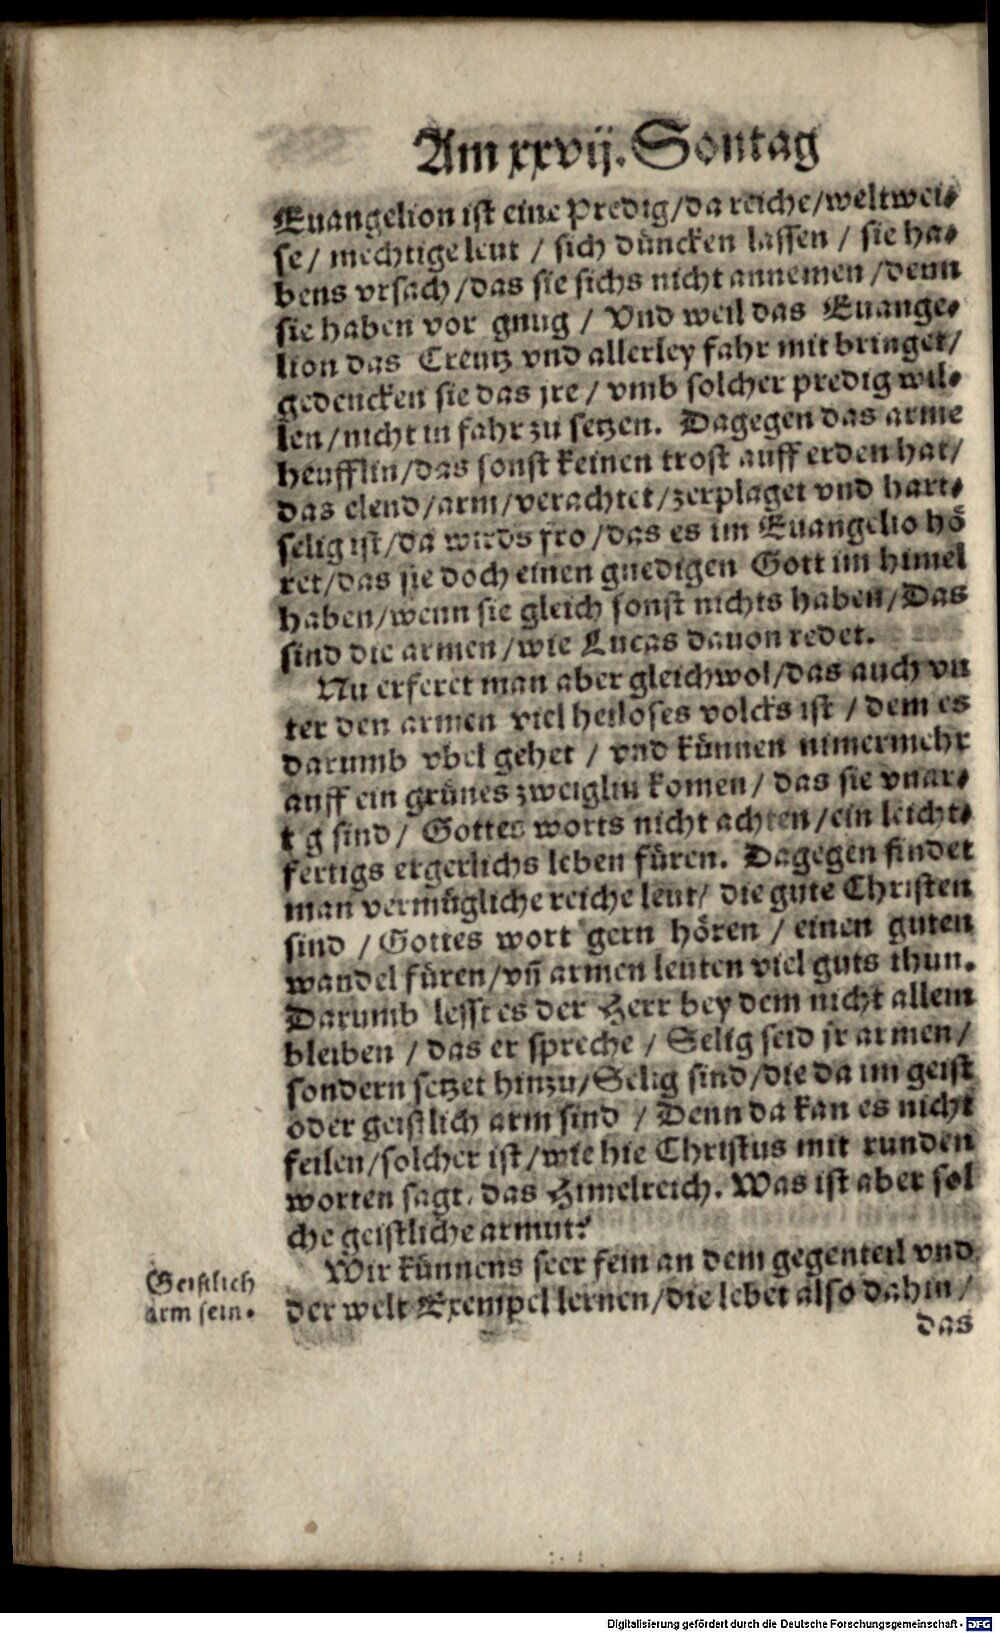 Am xxvij. Sontag
Euangelion ist eine predig/da reiche/weltwei⸗
se/ mechtige leut / sich düncken lassen / sie ha⸗
bens vrsach/das sie sichs nicht annemen /denn
sie haben vor gnug / Vnd weil das Euange⸗
lion das Creutz vnd allerley fahr mit bringet/
gedencken sie das jre / vmb solcher predig wil⸗
len/nicht in fahr zu setzen. Dagegen das arme
heufflin/das sonst keinen trost auff erden hat/
das elend/arm/verachtet/zerplaget vnd hart⸗
selig ist/da wirds fro /das es im Euangelio hö
ret/das sie doch einen gnedigen Gott im himel
haben/wenn sie gleich sonst nichts haben/Das
sind die armen/wie Lucas dauon redet.
Nu erferet man aber gleichwol/das auch vn
ter den armen viel heiloses volcks ist / dem es
darumb vbel gehet / vnd künnen nimermehr
auff ein grünes zweiglin komen/ das sie vnar⸗
t g sind/ Gottes worts nicht achten /ein leicht⸗
fertigs ergerlichs leben füren. Dagegen findet
man vermügliche reiche leut/ die gute Christen
sind /Gottes wort gern hören / einen guten
wandel füren/vñ armen leuten viel guts thun.
Darumb lesst es der Herr bey dem nicht allein
bleiben / das er spreche / Selig seid jr armen/
sondern setzet hinzu/Selig sind/die da im geist
oder geistlich arm sind / Denn da kan es nicht
feilen/solcher ist/wie hie Christus mit runden
worten sagt, das Himelreich. Was ist aber sol
che geistliche armut?
Wir künnens seer fein an dem gegenteil vnd
der welt Exempel lernen/die lebet also dahin /
das
Geistlich
arm sein.
Digitalisierung gefördert durch die Deutsche Forschungsgemeinschaft - DFG